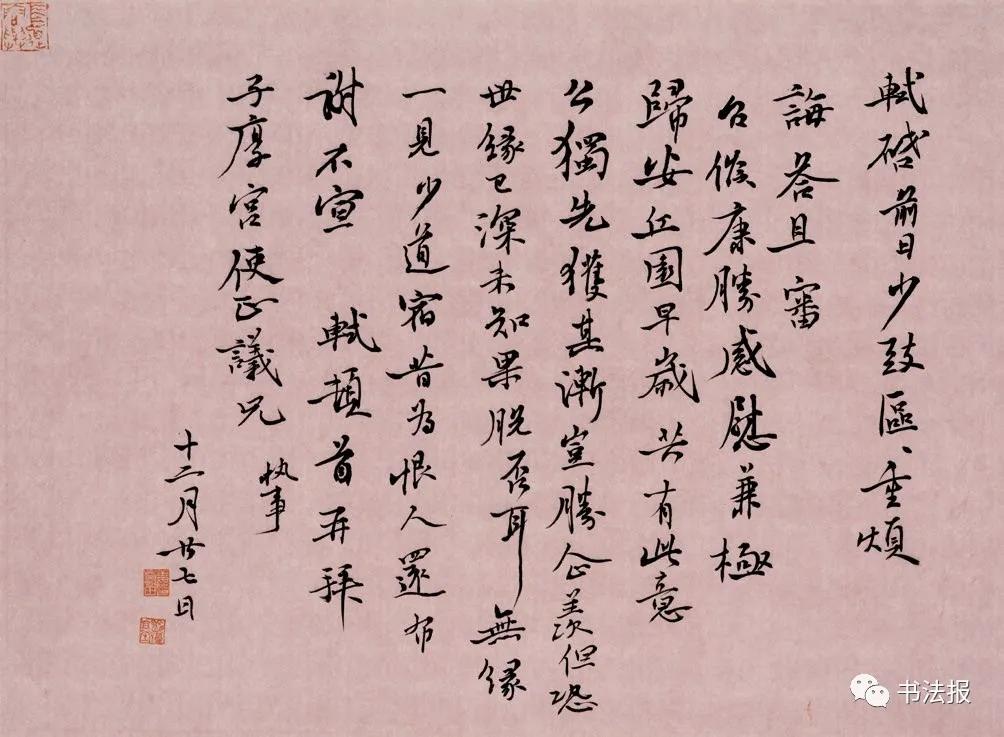 軾啓前日少致區、重煩
誨荅且審
台候康勝感慰兼極
歸安丘園早歲共有此意
公獨先獲其漸豈勝企羨但恐
世緣已深未知果脫否耳無緣
一見少道宿昔為恨人還布
謝不宣 軾頓首再拜
子厚宮使正議兄
執事
十二月廿七日
书法报